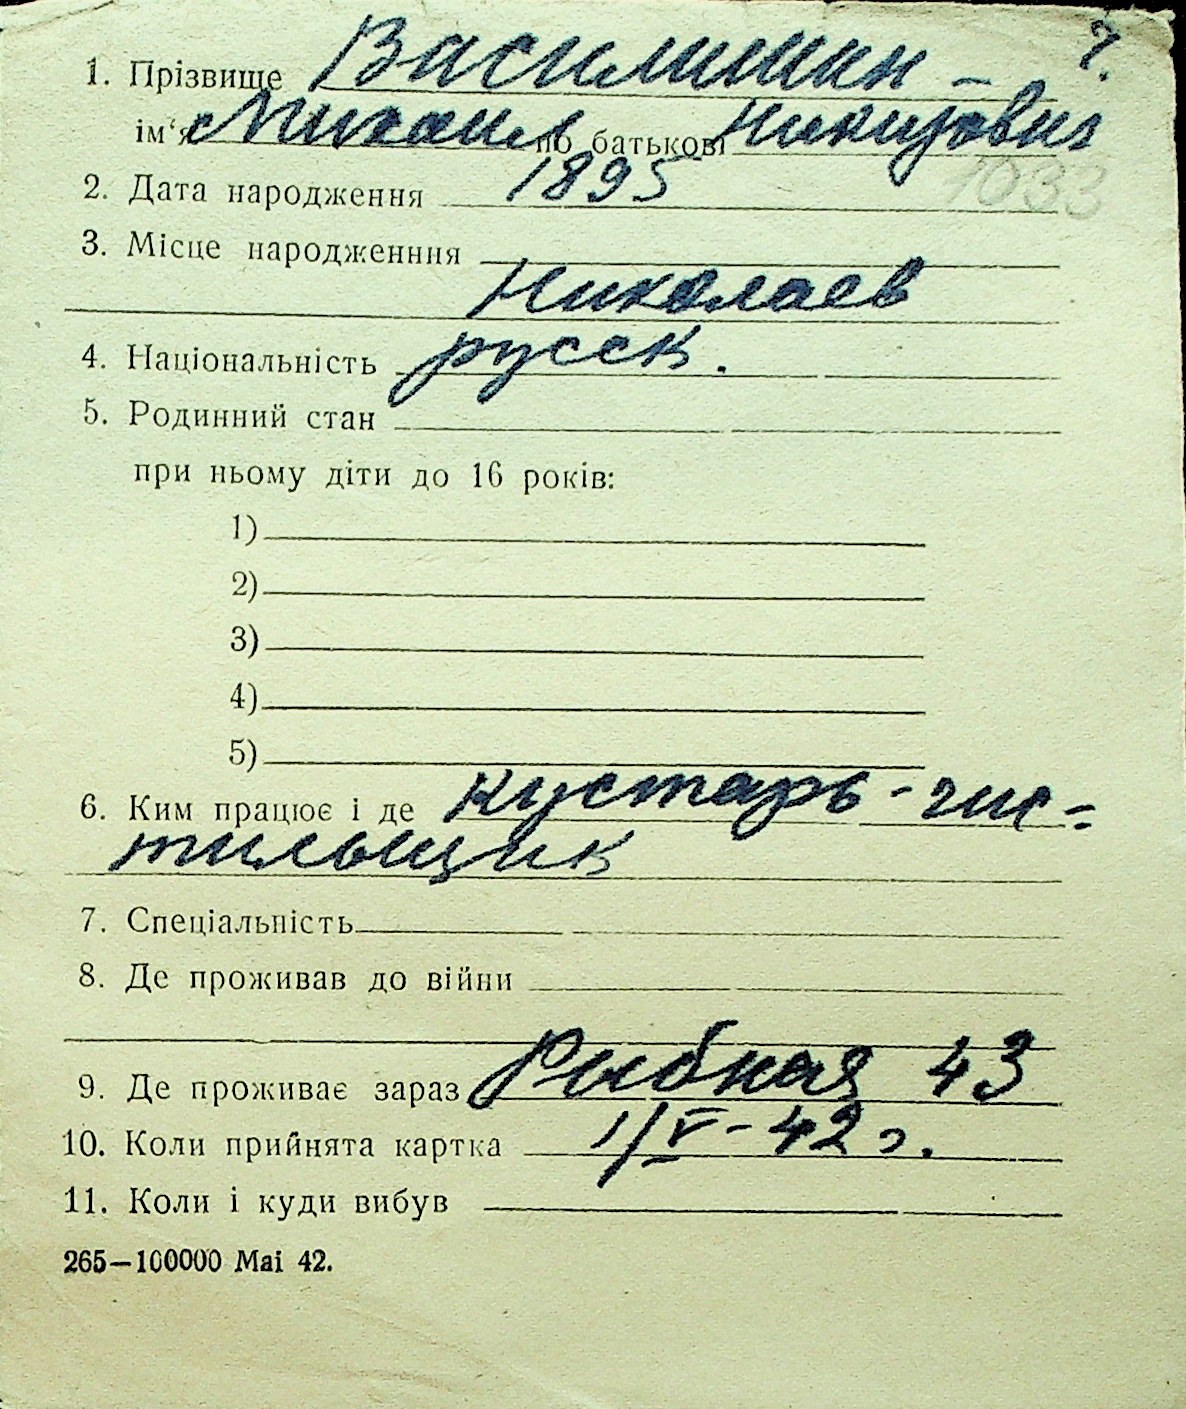 7.
1. Прізвище Василишин –
ім‘я Михаил по батькові Никитович
1033
2. Дата народження 1895
3. Місце народженння
Николаев
4. Національність русск.
5. Родинний стан
при ньому діти до 16 років:
1)
2)
3)
4)
5)
6. Ким працює і де кустарь-чис=
тильщик
7. Спеціальність
8. Де проживав до війни
9. Де проживає зараз Рыбная 43
10. Коли прийнята картка 1/V-42 г.
11. Коли і куди вибув
265—100000 Mai 42.